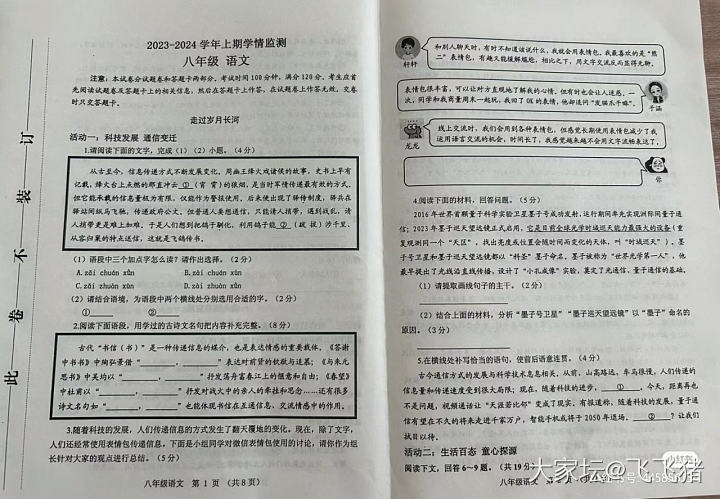 此 卷 不 装 订
2023-2024 学年上期学情监测
八年级 语文
注意:本试卷分试题卷和答题卡两部分,考试时间100分钟,满分120分。考生应首
先阅读试题卷及答题卡上的相关信息,然后在答题卡上作答,在试题卷上作答无效,交卷
时只交答题卡。
走过岁月长河
活动一:科技发展 通信变迁
1.请阅读下面的文字,完成(1)(2)小题。(4 分)
从古至今,信息传递方式不断发展变化。周幽王烽火戏诸侯的故事,史书上早有
记载,烽火台上点燃的那直冲云 ① (宵 霄)的狼烟,是当时军情传递最有效的方式。
但它能承载的信息量极为有限,仅能作为警报使用。后来便出现了驿传制度,驿兵在
驿站间纵马飞驰,传送政府公文。但普通人要想通信,只能请人捎带,遇到战乱,请
人捎带更是难上加难。于是人们想到把鸽子驯化,利用鸽子能 ② (跋 拔)涉千里、
从容归巢的特点送信,这就是飞鸽传书。
(1)语段中三个加点字怎么读?请作出选择。(2 分)
A. zǎi chuán xùn
B. zài chuán xùn
C. zǎi zhuàn xūn
D. zài zhuàn xūn
(2)请结合语境,为语段中两个横线处分别选用合适的字。(2 分)
①
②
2.阅读下面语段,用学过的古诗文名句把内容补充完整。(8 分)
古代“书信(书)”是一种传递信息的媒介,也是表达情感的重要载体。《答谢
中书书》中陶弘景借“ , ”表达对前贤的钦敬与追慕;《与朱元
思书》中吴均以“ , ”抒发荡舟富春江上的惬意和自由;《春望》
中杜甫以“ , ”抒发对战火中的亲人的牵挂和思念……还有很多
诗文名句如“ , ”也能体现书信在互通信息,交流情感中的作用。
3.随着科技的发展,人们传递信息的方式发生了翻天覆地的变化。现在,除了文字,
人们还经常使用表情包传递信息。下面是小组同学对微信表情包使用的讨论,请你作为组
长针对大家的观点进行总结。(5 分)
八年级语文 第 1 页 (共 8 页)
和别人聊天时,有时不知道该说什么,我就会用表情包。我最喜欢的是“熊
二”表情包,有趣又能缓解尴尬,相比之下,用文字交流反而显得无聊。
轩轩
表情包很丰富,可以让对方直观地了解我的心情。但有时也会让人迷惑。一
次,同学和我商量周末一起玩,我回了OK的表情,他却追问“发猫爪干嘛”。
子涵
线上交流时,我们会用到各种表情包,但感觉长期使用表情包减少了我
运用语言交流的机会,时间长了,我感觉越来越不会用文字流畅表达了。
龙龙
你
4.阅读下面的材料,回答问题。(5 分)
2016 年世界首颗量子科学实验卫星墨子号成功发射,运行期间率先实现洲际间量子通
信;2023 年墨子巡天望远镜正式启用,它是目前全球光学时域巡天能力最强大的设备(重
复观测同一个“天区”,找出亮度或位置会随时间而变化的天体,叫“时域巡天”)。墨
子号卫星和墨子巡天望远镜都以“科圣”墨子命名。墨子被称为“世界光学第一人”,他
最早提出了光线沿直线传播,设计了“小孔成像”实验,奠定了光通信、量子通信的基础。
(1)请提取画线句子的主干。(2 分)
(2)结合上面的材料,分析“墨子号卫星”“墨子巡天望远镜”以“墨子”命名的
原因。(3 分)
5.在横线处补写恰当的语句,使前后语意连贯。(4 分)
古今通信方式的发展与科学技术息息相关。从前,山高路远,车马很慢,人们传递的
信息量和传递速度受到很大局限;现在,随着科技的进步, ① ,今天,距离再也
不是问题,视频通话让“天涯若比邻”变成了现实。有报道称,随着科技的发展,量子通
信有望在不久的将来走进千家万户,智能手机或将于 2050 年退场, ② ?让我们
拭目以待。
活动二:生活百态 童心探源
阅读下文,回答 6~9 题。(共 19 分)
八年级语文
大家坛@飞飞猪
小红书